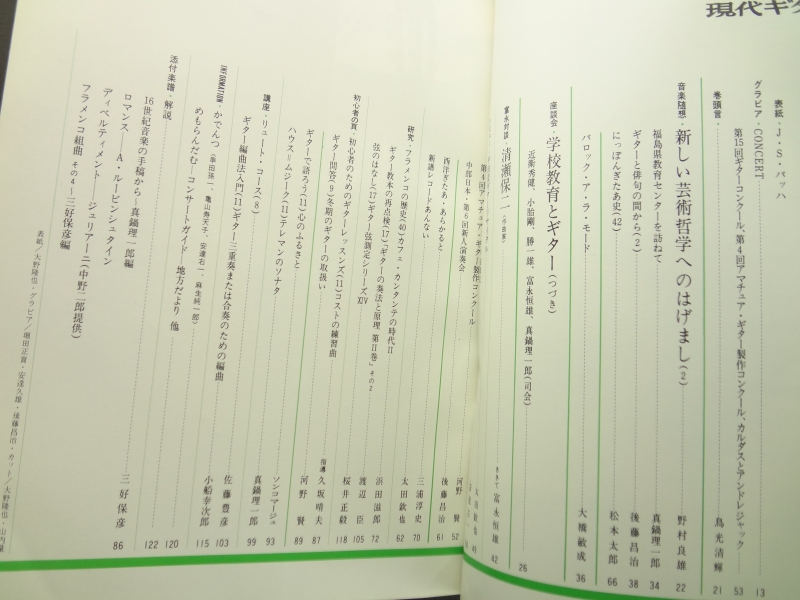 現代ギタ
表紙・J・S・バッハ 13
グラビア・CONCERT
第15回ギターコンクール、第4回アマチュア・ギター製作コンクール、カルダスとアンドレジャック 53
巻頭言・ 鳥光清輝 21
音楽随想・新しい芸術哲学へのはげまし(2) 野村良雄 22
福島県教育センターを訪ねて 真鍋理一郎 34
ギターと俳句の間から(2) 後藤昌治 38
にっぽんぎたあ史(42) 松本太郎 66
バロック・ア・ラ・モード 大橋敏成 36
座談会・学校教育とギター(つづき) 26
近藤秀健、小胎剛、勝一雄、富永恒雄、真鍋理一郎(司会)
富永対談 清瀬保二(作曲家) ききて 富永恒雄 42
第4回アマチュア・ギター製作コンクール
中部日本・第6回新人演奏会
西洋ぎたあ・あらかると 河野賢 52
新譜レコードあんない 後藤昌治 61
研究・フラメンコの歴史(40)カフェ・カンタンテの時代II 三浦淳史 70
ギター教本の再点検(17)「ギターの奏法と原理 第II巻」その2 太田欽也 62
弦のはなし(17)ギター弦測定シリーズXIV 浜田滋郎 72
初心者の頁・初心者のためのギターレッスンズ(11)コストの練習曲 渡辺臣 105
ギター問答(9)冬期のギターの取扱い 桜井正毅 118
ギターで語ろう(11)心のふるさと 指導 久坂晴夫 87
ハウス=ムジーク(11)テレマンのソナタ 河野賢 89
講座・リュート・コース(8) ソンコマージュ 93
ギター編曲法入門(11)ギター三重奏または合奏のための編曲 真鍋理一郎 99
INFORMATION・かでんつ(串田孫一、亀山寿天子、安達右一、麻生純一郎) 佐藤豊彦 103
めもらんだむ・コンサートガイド――地方だより 他 小船幸次郎 115
添付楽譜・解説 120
16世紀音楽の手稿から〜真鍋理一郎編 122
ロマンス――A・ルービンシュタイン
ディベルティメント――ジュリアーニ(中野二郎提供)
フラメンコ組曲 その4―三好保彦編 三好保彦 86
表紙/大野隆也・グラビア/堀田正實・安達久雄・後藤昌治・カット/大野隆也・山内